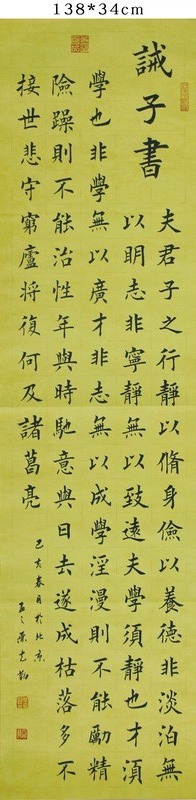 138*34cm
誡子書
夫君子之行靜以脩身儉以養德非淡泊無
以明志非寧靜無以致遠夫學須靜也才須
學也非學無以廣才非志無以成學淫漫則不能勵精
險躁則不能治性年與時馳意與日去遂成枯落多不
接世悲守窮廬將復何及 諸葛亮
己亥春月於北京